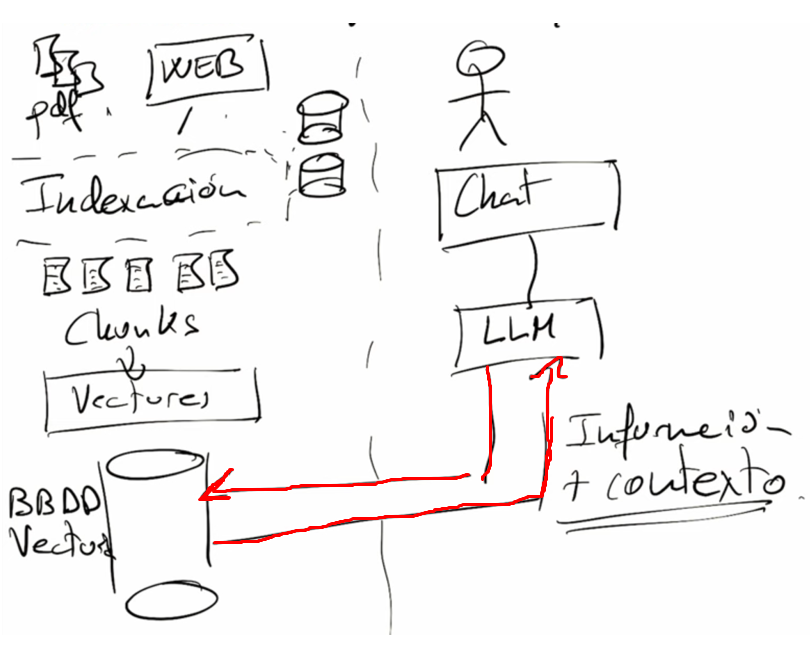 WEB
pdf
Indexación
Chunks
Vectores
BBDD
Vector
Chat
LLM
Información
+ contexto